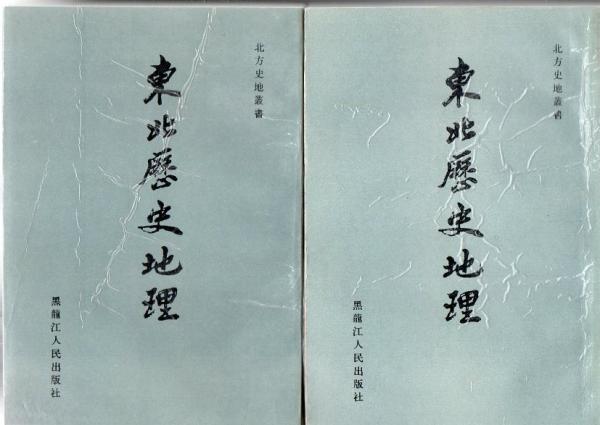 北方史地叢書
東北歷史地理
黑龍江人民出版社
北方史地叢書
東北歷史地理
黑龍江人民出版社